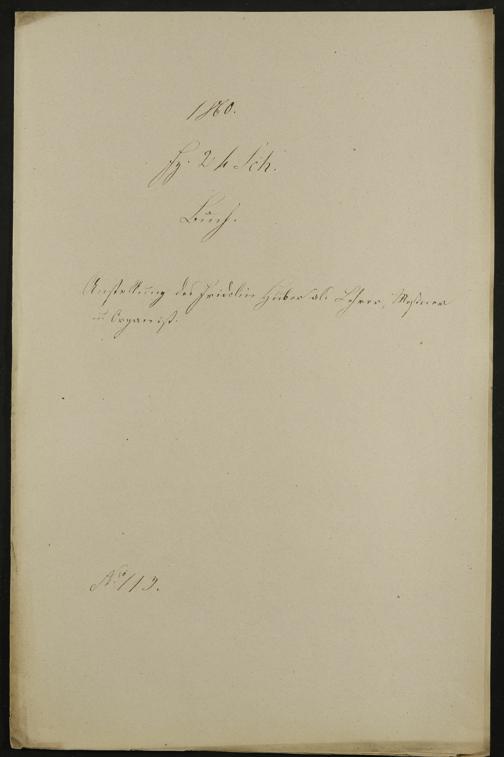 1860.
Fz. 2 b Sch.
Buch.
Anstellung des Fridolin Huber als Lehrer, Meßner
u. Organist.
No. 113.